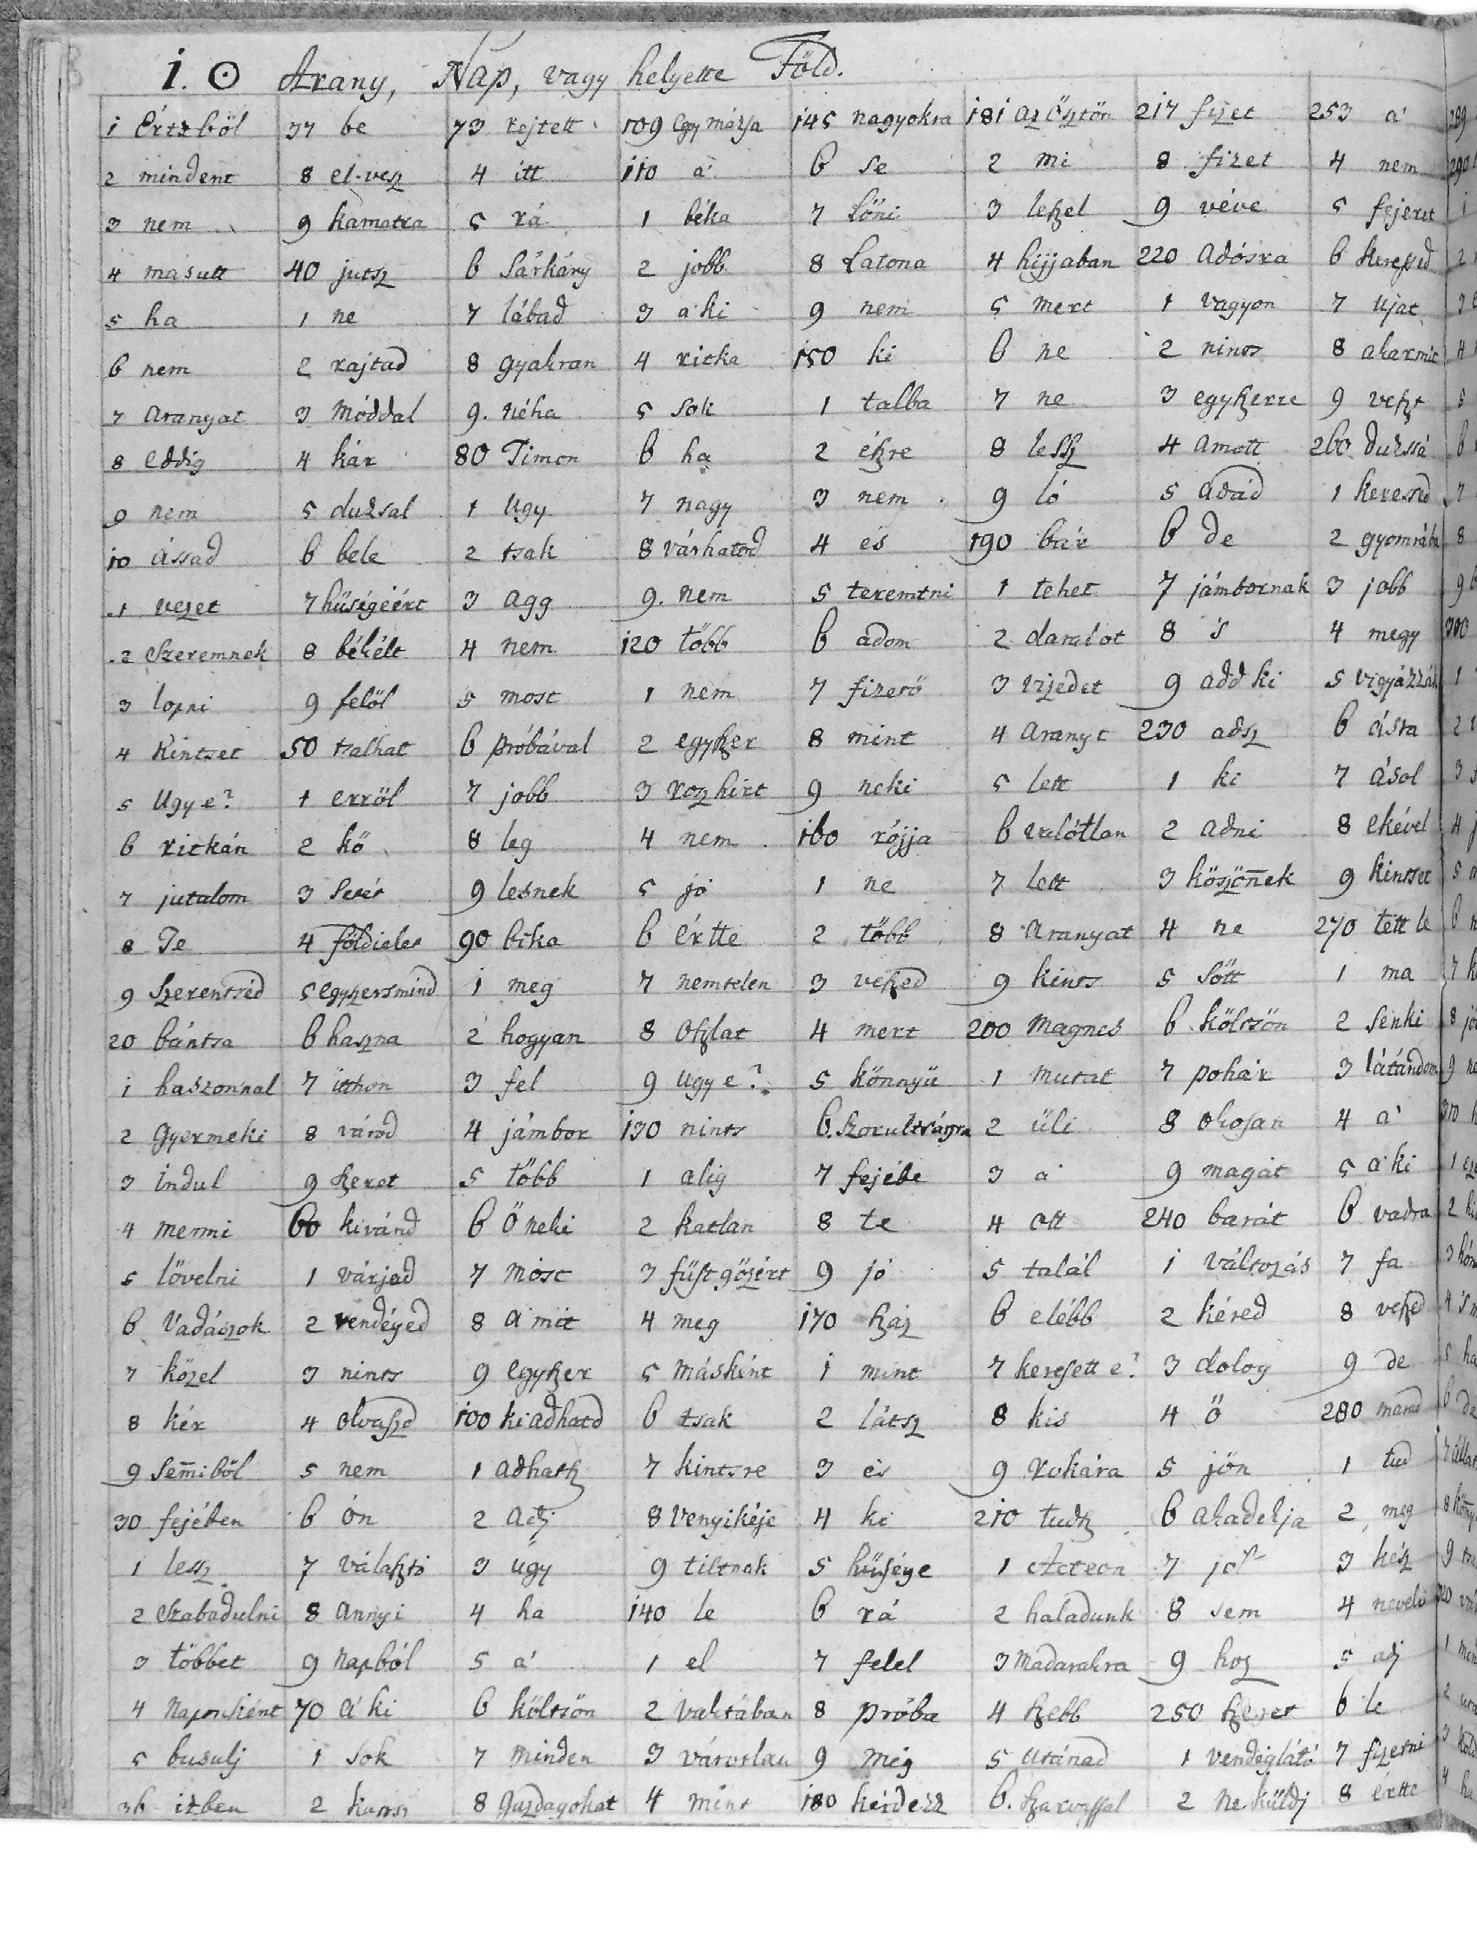 i. ☉ Arany, Nap, vagy helyette Föld.
i Értzböl 37 be 73 rejtett 109 Egy mázsa 145 nagyokra 181 az Ösztön 217 fizet 253 a'
2 mindent 8 el-vesz 4 itt 110 a' 6 se 2 mi 8 fizet 4 nem
3 nem 9 kamatra 5 rá 1 béka 7 Lőni 3 leszel 9 véve 5 fejeret
4 masutt 40 jutsz 6 Sárkány 2 jobb 8 Latona 4 hijjaban 220 adósra 6 keressed
5 ha 1 ne 7 lábad 3 a'ki 9 nem 5 mert 1 vagyon 7 ujat
6 nem 2 rajtad 8 gyakran 4 ritka 150 ki 6 ne 2 nints 8 akarmit
7 aranyat 3 móddal 9. néha 5 sok 1 talba 7 ne 3 egyszerre 9 veszt
8 eddig 4 kár 80 Timon 6 ha 2 észre 8 lessz 4 amott 260
9 nem 5 dussal 1 Ugy 7 nagy 3 nem 9 ló 5 adád 1
10 ássad 6 bele 2 tsak 8 várhatod 4 és 190 bár 6 de 2 gyomrába
1 vezet 7 hűségéért 3 agg 9. nem 5 teremtni 1 tehet 7 jámbornak 3 jobb
2 Szeremnek 8 békélt 4 nem 120 több 6 adom 2 darabot 8 's 4 megy
3 lopni 9 felöl 5 most 1 nem 7 fizető 3 vijedet 9 add ki 5
4 Kintset 50 tsalhat 6 próbával 2 egyszer 8 mint 4 aranyt 230 adsz 6 ásta
5 Ugy e? 1 erröl 7 jobb 3 rosz hirt 9 neki 5 lett 1 ki 7 ásol
6 ritkán 2 kő 8 leg 4 nem 160 rójja 6 valótlan 2 adni 8 ekével
7 jutalom 3 9 lesnek 5 jó 1 ne 7 lett 3 köszönnek 9 kintset
8 Te 4 90 bika 6 értte 2 több 8 aranyat 4 ne 270 tett le
9 Szerentséd 5 egyszersmind 1 meg 7 nemtelen 3 veszed 9 kints 5 sőtt 1 ma
20 bántsa 6 haszna 2 hogyan 8 oszlat 4 mert 200 Magnes 6 költsön 2 senki
1 haszonnal 7 itthon 3 fel 9 ugy e? 5 könnyü 1 mutat 7 pohár 3 látándom
2 gyermeki 8 várod 4 jámbor 130 nints 6. 2 üli 8 okosan 4 a'
3 indul 9 szeret 5 több 1 alig 7 fejébe 3 a' 9 magát 5 a'ki
4 menni 60 kivánd 6 Ő neki 2 katlan 8 te 4 ott 240 barát 6 vadra
5 lövelni 1 várjad 7 most 3 füst gőzért 9 jó 5 talál 1 változás 7 fa
6 Vadászok 2 vendéged 8 a mit 4 meg 170 ház 6 elébb 2 kéred 8 veszed
7 közel 3 nints 9 egyszer 5 másként 1 mint 7 keresett e? 3 dolog 9 de
8 kér 4 olvaszd 100 kiadhatd 6 tsak 2 látsz 8 kis 4 ő 280 marad
9 Semmiből 5 nem 1 adhatsz 7 kintsre 3 és 9 rokára 5 jön 1 tud
30 fejében 6 ón 2 adj 8 venyikéje 4 ki 210 tudsz 6 akadékja 2 meg
1 lessz 7 választó 3 úgy 9 tiltnak 5 hűsége 1 Acteon 7 3 kész
2 Szabadulni 8 annyi 4 ha 140 le 6 rá 2 haladunk 8 sem 4 nevelő
3 többet 9 napból 5 a' 1 el 7 felel 3 madarakra 9 hoz 5 adj
4 naponként 70 a' ki 6 költsön 2 vaktában 8 próba 4 szebb 250 szeret 6 le
5 busulj 1 sok 7 minden 3 várorlan 9 még 5 utánad 1 vendéglátó 7 fizetni
36 izben 2 8 gazdagokat 4 mint 180 kérdezz 6. szarvassal 2 ne küldj 8 értte